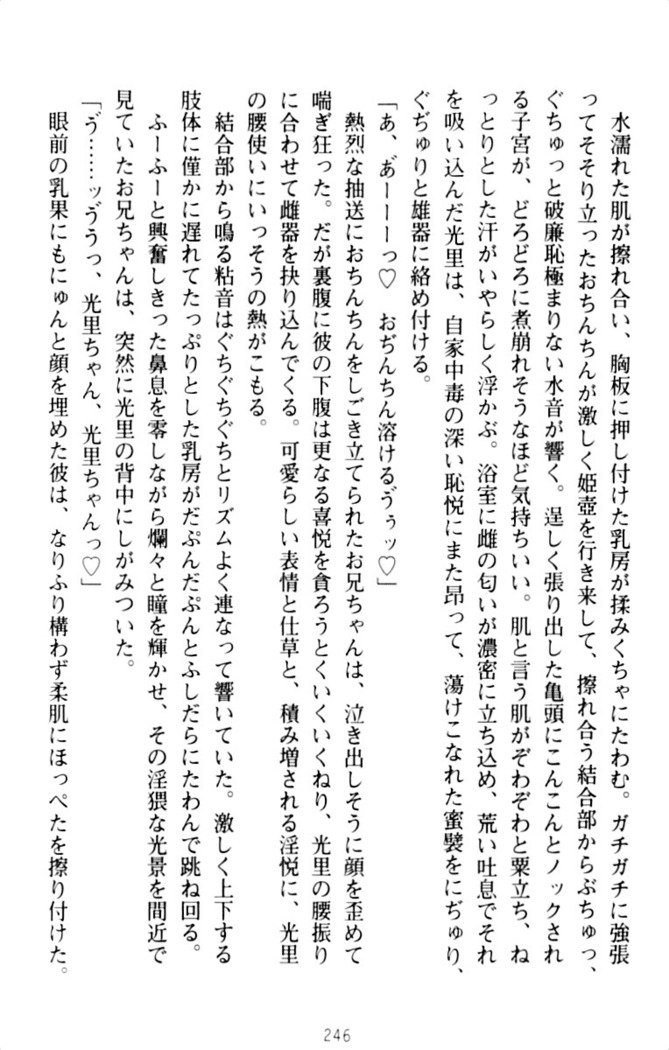 水濡れた肌が擦れ合い、胸板に押し付けた乳房が揉みくちゃにたわむ。ガチガチに強張
ってそそり立ったおちんちんが激しく姫壺を行き来して、擦れ合う結合部からぶちゅっ、
ぐちゅっと破廉恥極まりない水音が響く。逞しく張り出した亀頭にこんこんとノックされ
る子宮が、どろどろに煮崩れそうなほど気持ちいい。肌と言う肌がぞわぞわと粟立ち、ね
っとりとした汗がいやらしく浮かぶ。浴室に雌の匂いが濃密に立ち込め、荒い吐息でそれ
を吸い込んだ光里は、自家中毒の深い恥悦にまた昂って、蕩けこなれた蜜襞をにぢゅり、
ぐぢゅりと雄器に絡め付ける。
「あ、あ゙ーーーっ♡　おぢんちん溶けるゔぅッ♡」
熱烈な抽送におちんちんをしごき立てられたお兄ちゃんは、泣き出しそうに顔を歪めて
喘ぎ狂った。だが裏腹に彼の下腹は更なる喜悦を貪ろうとくいくいくねり、光里の腰振り
に合わせて雌器を抉り込んでくる。可愛らしい表情と仕草と、積み増される淫悦に、光里
の腰使いにいっそうの熱がこもる。
結合部から鳴る粘音はぐちぐちぐちとリズムよく連なって響いていた。激しく上下する
肢体に僅かに遅れてたっぷりとした乳房がだぷんだぷんとふしだらにたわんで跳ね回る。
ふーふーと興奮しきった鼻息を零しながら爛々と瞳を輝かせ、その淫猥な光景を間近で
見ていたお兄ちゃんは、突然に光里の背中にしがみついた。
「ゔ……ッゔうっ、光里ちゃん、光里ちゃんっ♡」
眼前の乳果にもにゅんと顔を埋めた彼は、なりふり構わず柔肌にほっぺたを擦り付けた。
246